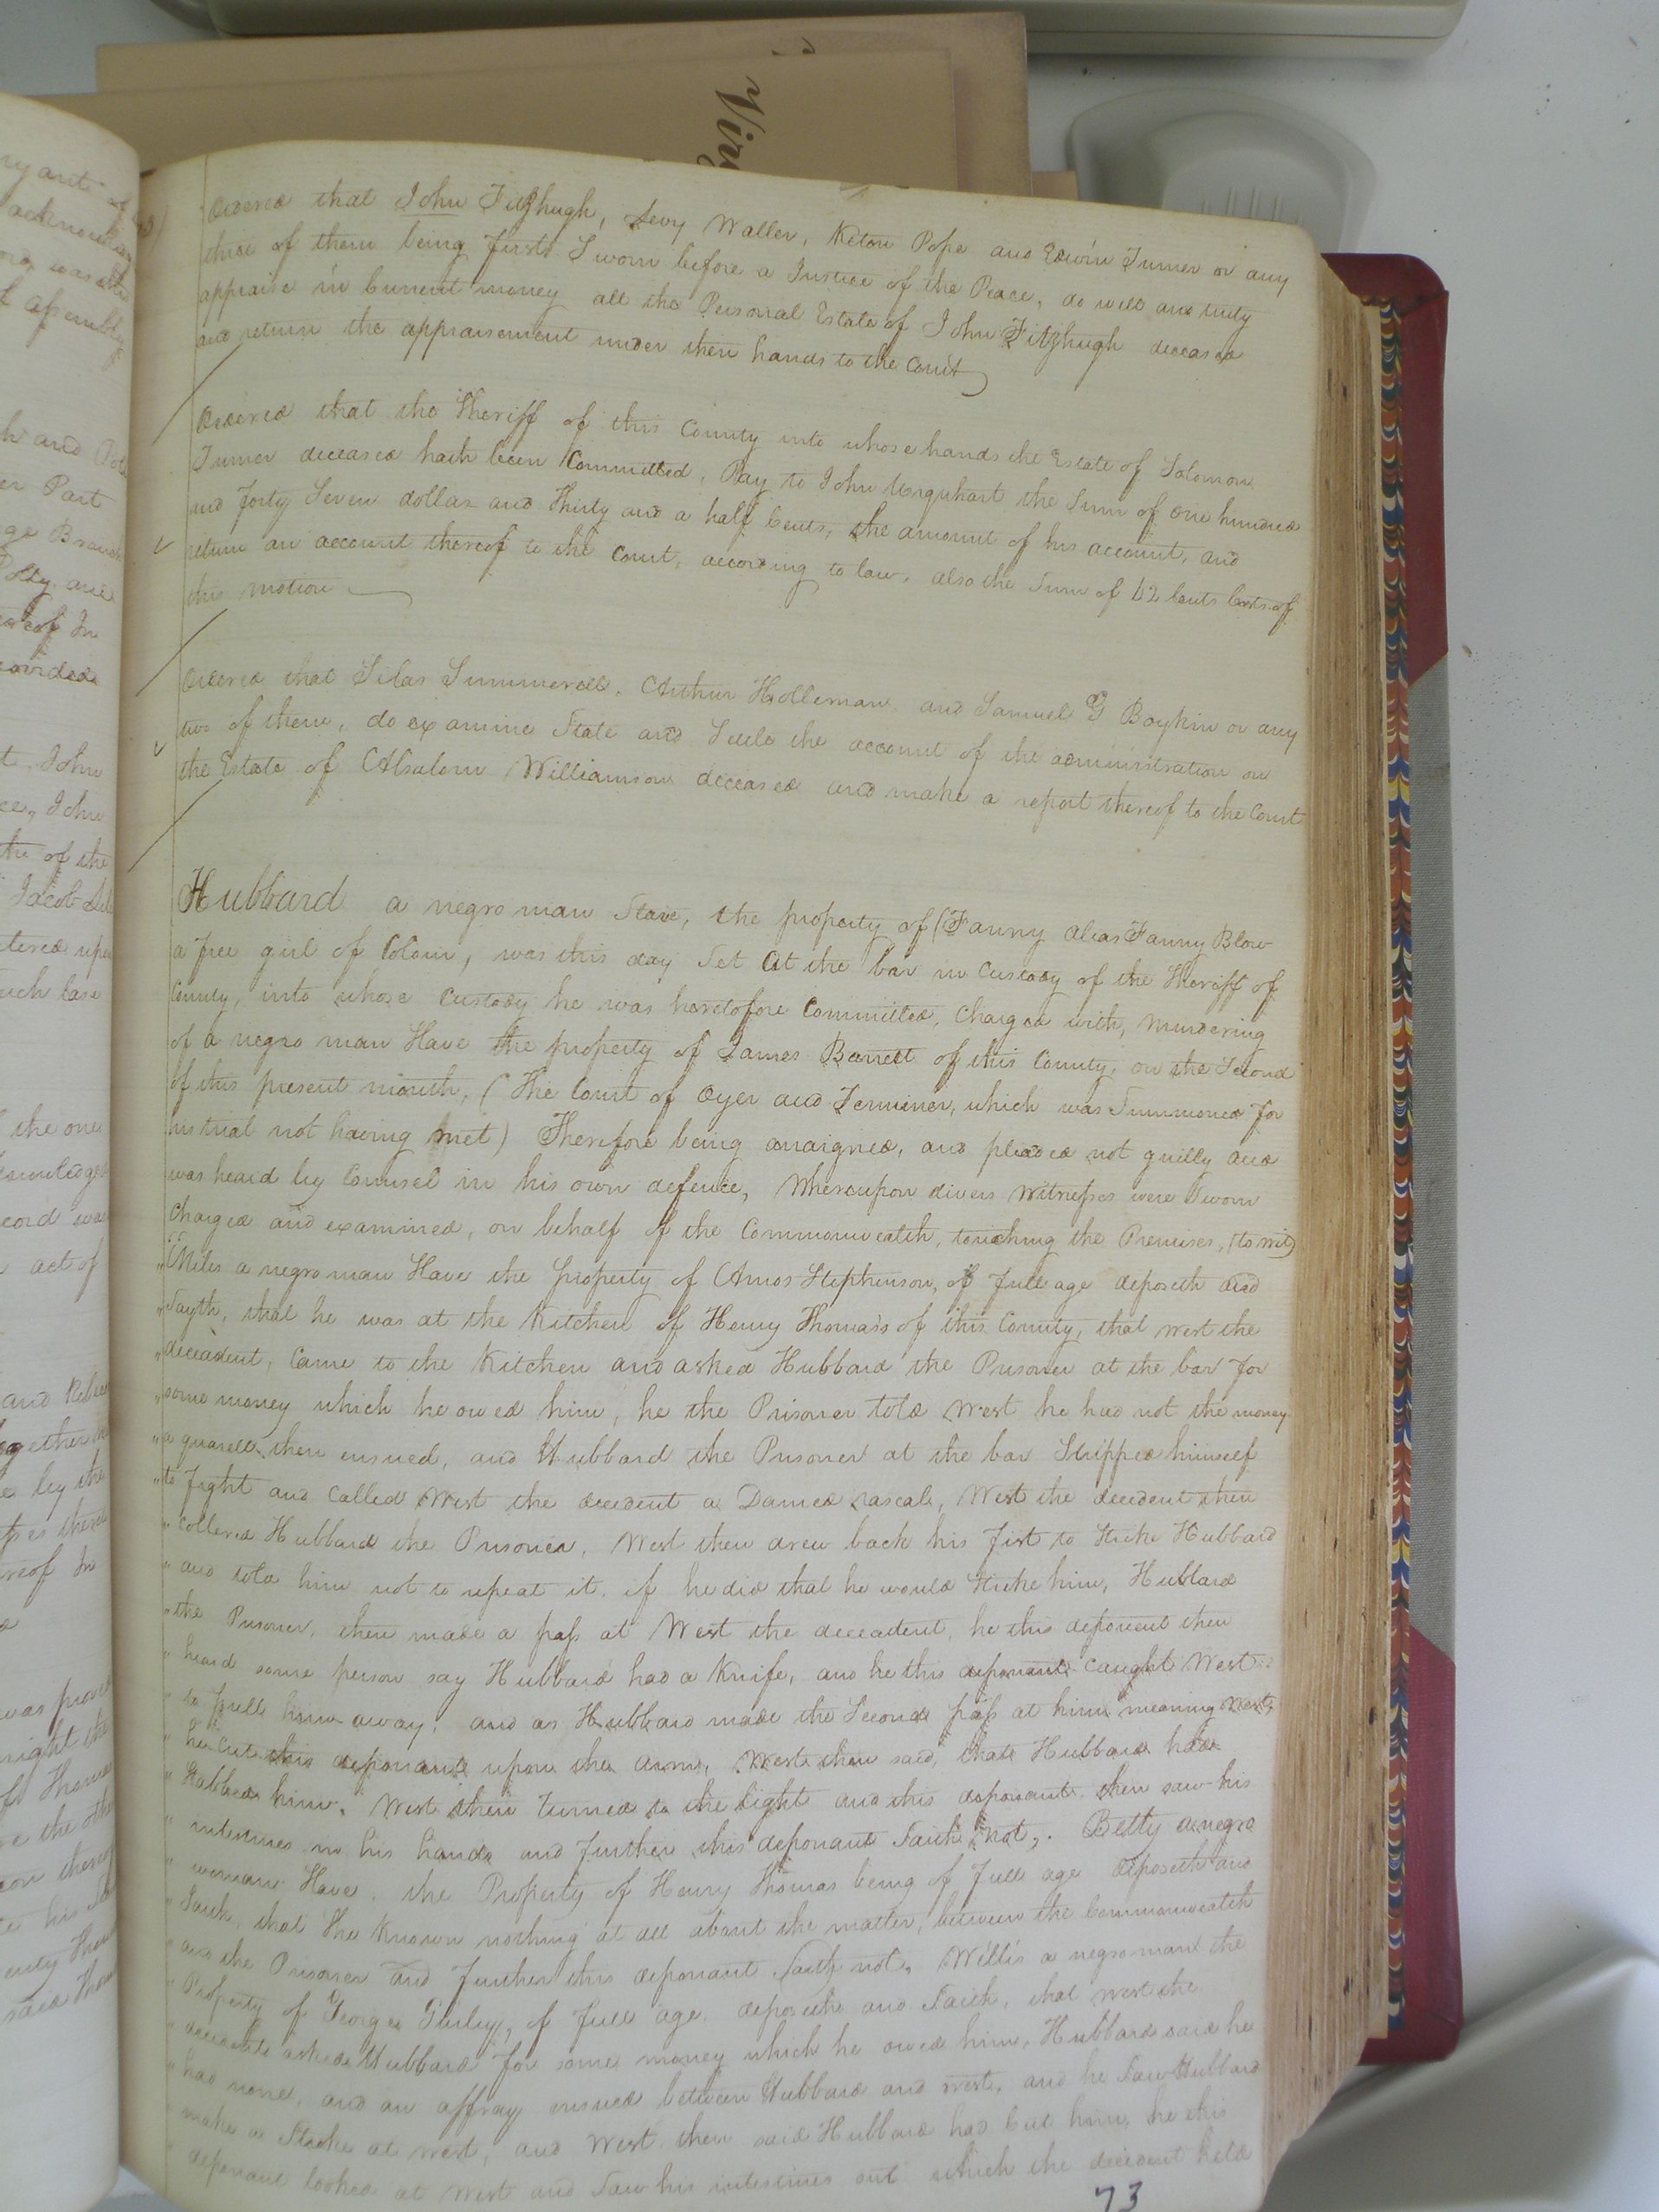 Ordered that John Fitzhugh, Levy Waller, Keton Pope and Edwin Turner or any
three of them being first Sworn before a Justice of the Peace, do well and truly
appraise in Current money all the Personal Estate of John Fitzhugh deceased
and return the appraisement under their hands to the Court
Ordered that the Sheriff of this County into whose hands the Estate of Solomon
Turner deceased hath been Committed, Pay to John Urquhart the Sum of one hundred
and forty Seven dollars and Thirty and a half Cents, the amount of his account, and
return an account thereof to the Court, according to law, also the Sum of 62 Cents Costs of
this motion
Ordered that Silas Summerell, Arthur Holleman and Samuel G Boykin or any
two of them, do examine State and Settle the account of the administration on
the Estate of Absalom Williamson deceased and make a report thereof to the Court
Hubbard a negro man Slave, the property of (Fanny alias Fanny Blow
a free girl of Colour, was this day Set at the bar in Custody of the Sheriff of
County, into whose Custody he was heretofore Committed, Charged with, Murdering
of a negro man Slave the property of James Barrett of this County, on the Second
of this present month, (The Court of Oyer and Terminer, which was Summoned for
his trial not having met) Therefore being arraigned, and pleaded not guilty and
was heard by Counsel in his own defence, Whereupon divers Witnesses were Sworn
Charged and examined, on behalf of the Commonwealth, touching the Premises, (to wit)
"Miles a negro man Slave the property of Amos Stephenson, of full age deposeth and
"Sayth, that he was at the Kitchen of Henry Thomas's of this County, that West the
"deceadent, Came to the Kitchen and asked Hubbard the Prisoner at the bar for
"some money which he owed him, he the Prisoner told West he had not the money
"a quarell then ensued, and Hubbard the Prisoner at the bar Stripped himself
"to fight and Called West the decedent a Damed rascal, West the decedent then
"Collered Hubbard the Prisoner, West then drew back his fist to Strike Hubbard
"and told him not to repeat it, if he did that he would Strike him, Hubbard
"the Prisoner, then made a pass at West the deceadent, he this deponent then
"heard some person say Hubbard had a Knife, and he this deponant caught West
"to pull him away, and as Hubbard made the Second pass at him meaning West
"he Cut this deponant upon the arm, West then said, that Hubbard had
"Stabbed him, West then turned to the light and this deponant then saw his
"intestines in his hands and further this deponant Saith not,. Betty a negro
"woman Slave, the Property of Henry Thomas being of full age deposeth and
"Saith, that She Knows nothing at all about the matter, between the Commonwealth
"and the Prisoner and further this deponant Saith not, Willis a negro man the
"Property of George Gurley, of full age deposeth and Saith, that West the
"decedent asked Hubbard for some money which he owed him, Hubbard said he
"had none, and an affray ensued between Hubbard and West, and he Saw Hubbard
"make a Stroke at West, and West then said Hubbard had Cut him, he this
"deponant looked at West and Saw his intestines out which the decedent held
73